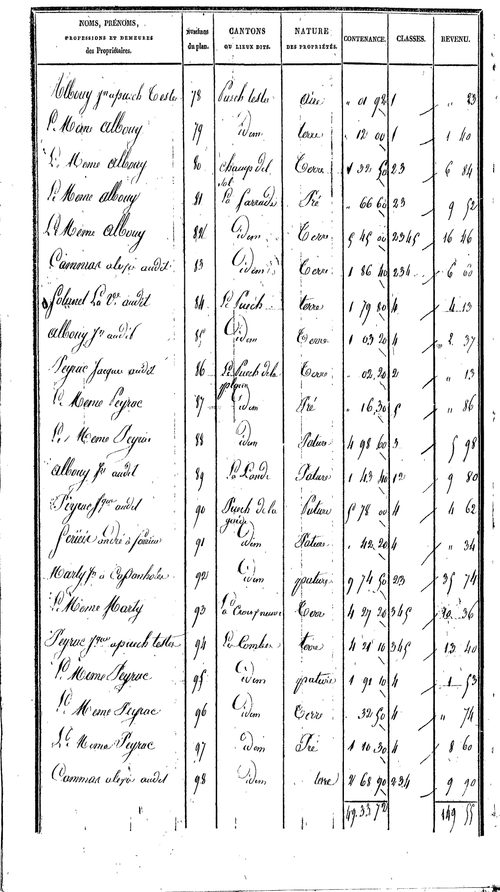 NOMS, PRÉNOMS, PROFESSIONS ET DEMEURES des Propriétaires. | Numéros du plan. | CANTONS OU LIEUX DITS. | NATURE DES PROPRIÉTÉS. | CONTENANCE. | CLASSES. | REVENU.
Albouy jn a puech Testes 78 Puech testes aire " 01 92 1 " 23
Le Meme Albouy 79 idem terre " 12 00 1 1 40
Le Meme Albouy 80 champ del Terre 1 32 50 23 6 84
Le Meme Albouy 81 La Pré " 66 60 23 9 52
Le Meme Albouy 82 idem Terre 5 45 00 2345 16 46
Cammas audit 83 idem Terre 1 86 40 234 6 60
La Ve audit 84 Le Puech terre 1 79 80 4 4 13
Albouy Jn audit 85 idem Terre 1 03 20 4 2 37
Peyrac Jacques audit 86 Le Puech de la Terre " 02 20 2 " 13
Le Meme Peyrac 87 idem Pré " 16 30 5 " 86
Le Meme Peyrac 88 idem Pature 4 98 60 3 5 98
Albouy Jn audit 89 La Lande Pature 1 43 40 12 9 80
Peyrac Jques audit 90 Puech de la Pature 5 78 00 4 4 62
andré à 91 idem Pature " 42 20 4 " 34
Marty Jn à 92 idem pature 9 74 50 23 35 74
Le Meme Marty 93 La Terre 4 27 20 345 20 36
Peyrac Jques a puech testes 94 La Combe terre 4 21 10 345 13 40
Le Meme Peyrac 95 idem pature 1 91 10 4 1 53
Le Meme Peyrac 96 idem Terre " 32 50 4 " 74
Le Meme Peyrac 97 idem Pré 1 10 30 4 8 60
Cammas audit 98 idem terre 2 68 90 234 9 90
49 33 72 149 55